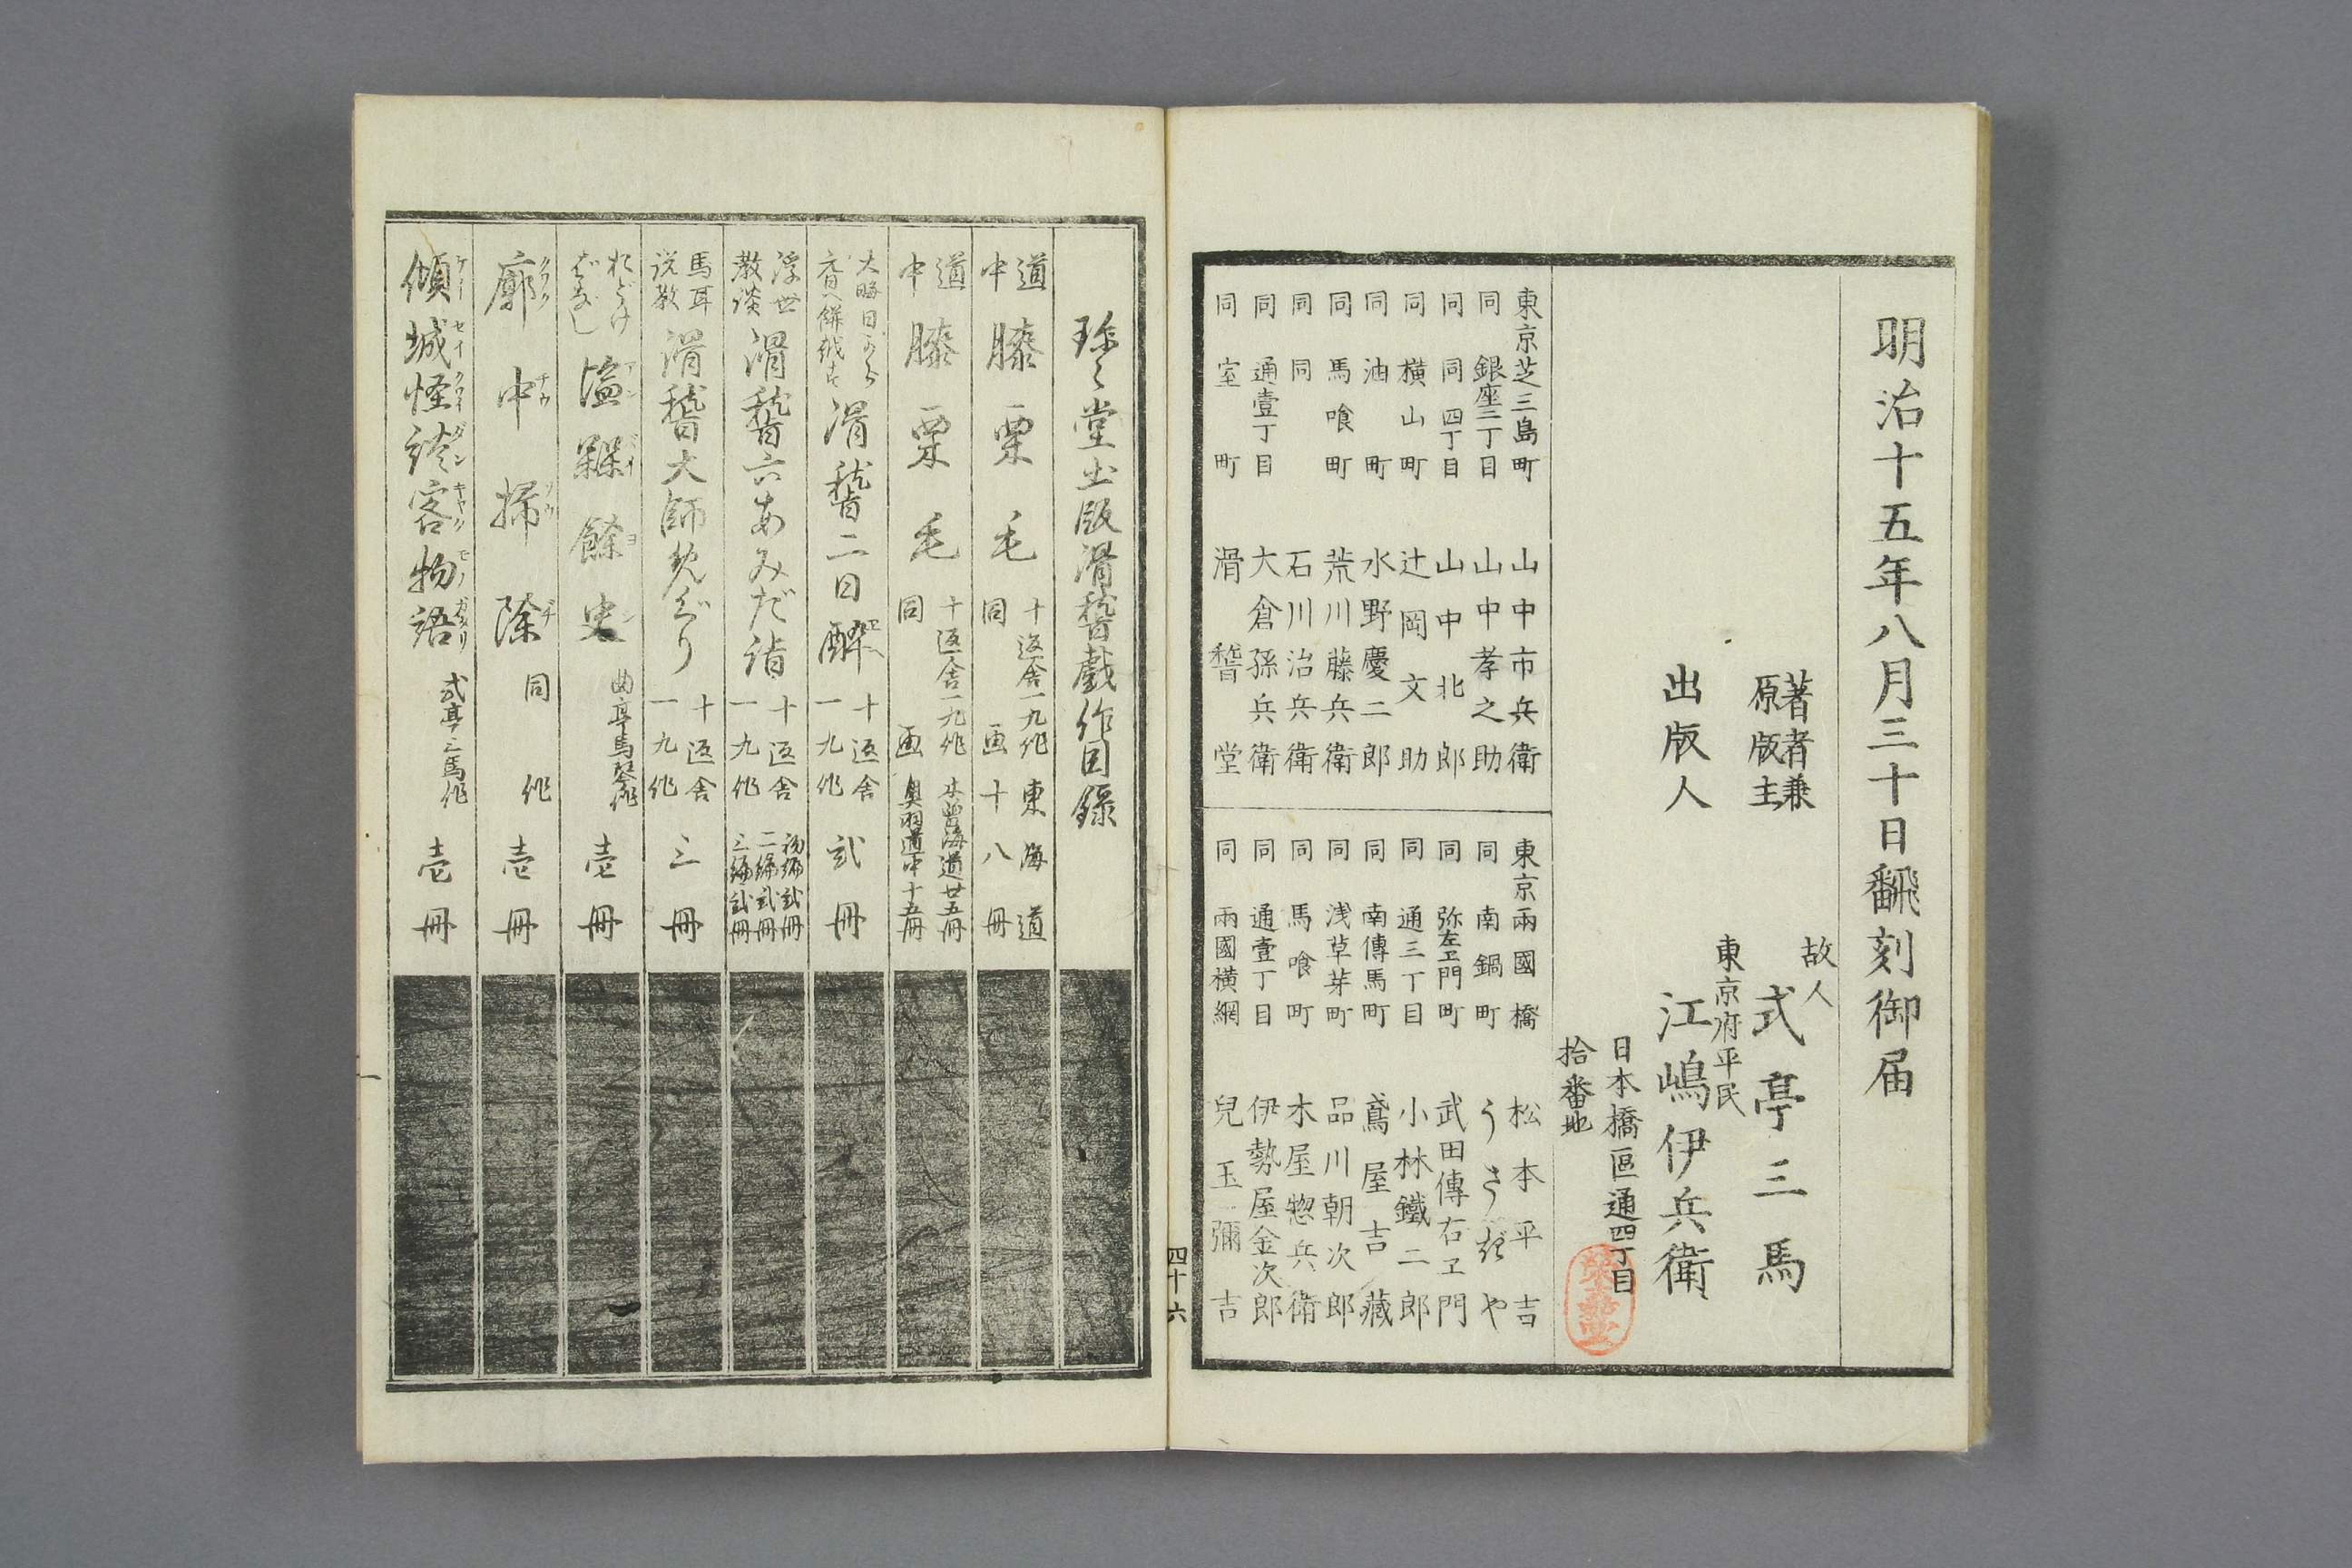 明治十五年八月三十日翻刻御届
著者兼
原版主
故人
式亭三馬
出版人
東京府平民
江嶋伊兵衛
日本橋區通四丁目
拾番地
東京芝三島町 山中市兵衛
同 銀座二丁目 山中孝之助
同 同 四丁目 山中北郎
同 横山町 辻岡文助
同 油町 水野慶二郎
同 馬喰町 荒川藤兵衛
同 同 石川治兵衛
同 通壹丁目 大倉孫兵衛
同 室町 滑稽堂
東京兩國橋 松本平吉
同 南鍋町 うさぎや
同 弥左ヱ門町 武田傳右ヱ門
同 通三丁目 小林鐵二郎
同 南傳馬町 鳶屋吉藏
同 浅草芽町 品川朝次郎
同 馬喰町 木屋惣兵衛
同 通壹丁目 伊勢屋金次郎
同 兩國横網 兒玉彌吉
四十六
堂出版滑稽戯作目録
道中膝栗毛 十返舎一九作 同画 東海道 十八冊
道中膝栗毛 十返舎一九作 同画 木曽海道廿五冊 奥羽道中十五冊
大晦日 滑稽二日酔 十返舎一九作 弐冊
浮世教談 滑稽六あみだ詣 十返舎一九作 初編弐冊 二編弐冊 三編弐冊
馬耳説教 滑稽大師めぐり 十返舎一九作 三冊
おどけばなし 餘史 曲亭馬琴作 壱冊
廓中掃除 同作 壱冊
傾城怪談客物語 式亭三馬作 壱冊